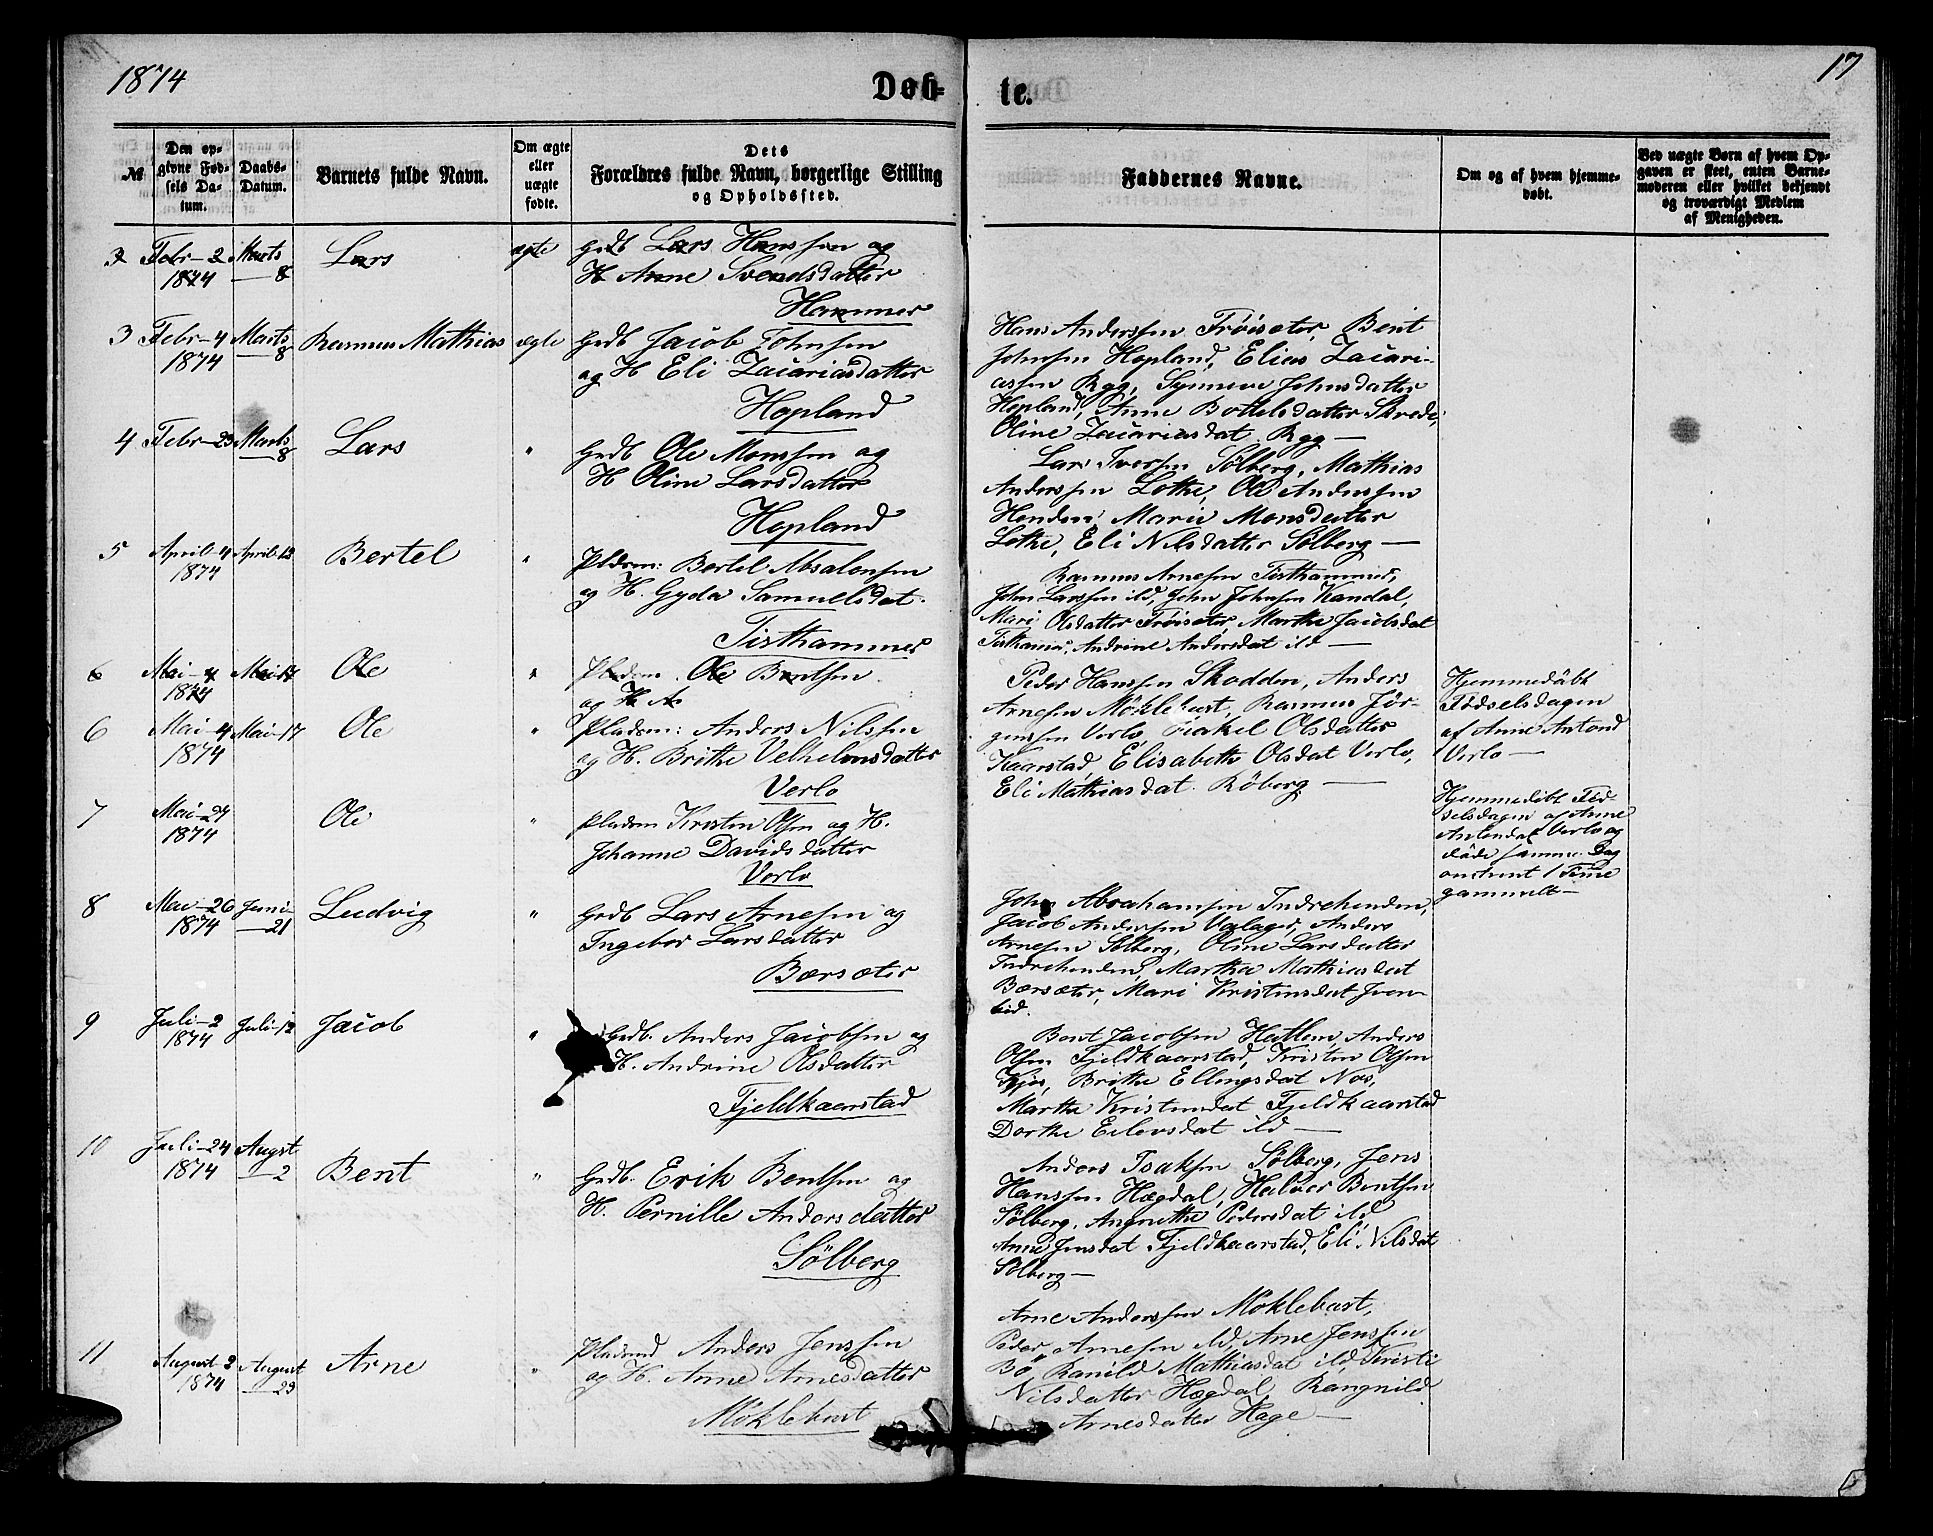 1874
17
Døb-
te.
№
Den op-
givne Fød-
sels Da-
tum.
Daabs-
Datum.
Barnets fulde Navn.
Om ægte
eller
uægte
fødte.
Dets
Forældres fulde Navn, borgerlige Stilling
og Opholdssted.
Faddernes Navne.
Om og af hvem hjemme-
døbt.
Ved uægte Børn af hvem Op-
gaven er skeet, enten Barne-
moderen eller hvilket bekjendt
og troværdigt Medlem
af Menigheden.
3 Febr-2 Marts Lars ægte Grdb Lars Hanssen og
1874 8 H Anne Svendsdatter
Hammer
3 Febr-4 Marts Rasmus Mathias ægte Grdb Jacob Johnsen
1874 8 og H Eli Zacariasdatter
Hopland
Hans Anderssen Trøisæter, Bent
Johnsen Hopland, Elias Zacari-
assen Rgg, Synneve Johnsdatter
Hopland, Anne Bottelsdatter Skrede,
Oline Zacariasdat. Rgg—
4 Febr-23 Marts Lars " Grdb Ole Monssen og
8 H Oline Larsdatter
Hopland
Lars Iversen Sölberg, Mathias
Anderssen Lothe, Ole Anderssen
Henden, Marie Monsdatter
Lothe, Eli Nilsdatter Sölberg—
5 April-4 April-12 Bertel " Pladsm: Bertel Absalonsen
1874 og H. Gyda Samuelsdat.
Tisthammer
Rasmus Arnesen Tisthammer,
John Larssen ild, John Johnsen Kandal,
Mari Olsdatter Trøisæter, Marthe Jacobsdat
Tistham: Andrine Andersdat ild—
6 Mai-4 Mai-17 Ole " Pladsm. Ole Bentsen
1874 og H A
6 Mai-4 Mai-17 Ole " Pladsm: Anders Nilssen
1874 og H. Brithe Velhelmsdatter
Verlo
Peder Hanssen Skodden, Anders
Arnesen Möklebust, Rasmus Jör-
genssen Verlo, Rakel Olsdatter
Kaarstad, Elisabeth Olsdat Verlo,
Eli Mathiasdat. Röberg—
Hjemmedöbt
Födselsdagen
af Anne Antond
Verlo—
7 Mai-24 Ole " Pladsm Kristen Olsen og H.
1874 Johanne Davidsdatter
Verlo
Hjemmedöbt Föd-
selsdagen af Anne
Antondat Verlo og
döde samme Dag
omtrent 1 Time
gammelt—
8 Mai-26 Juni- Ludvig " Grdb Lars Arnesen og
1874 21 Ingebor Larsdatter
Bærsæter
John Abrahamsen Indrehenden,
Jacob Anderssen Valager, Anders
Arnesen Sölberg, Oline Larsdatter
Indrehenden, Marthe Mathiasdat
Bærsæter, Mari Kristensdat Jven-
lid.
9 Juli-2 Juli-12 Jacob " Grdb. Anders Jacobsen og
1874 H. Andrine Olsdatter
Fjeldkaarstad
Bent Jacobsen Hatlem, Anders
Olsen Fjeldkaarstad, Kristen Olsen
Kjös, Brithe Ellingsdat Nos,
Marthe Kristensdat Fjeldkaarstad
Dorthe Eilevsdat ild—
10 Juli-24 Augst Bent " Grdb. Erik Bentsen og
1874 2 H. Pernille Andersdatter
Sölberg
Anders Isaksen Sölberg, Jens
Hanssen Hægdal, Halver Bentsen
Sölberg, Angnethe Pedersdat ild
Anne Jensdat Fjeldkaarstad, Eli Nilsdat
Sölberg—
11 August-2 August Arne " Pladsmd Anders Jenssen
1874 23 og H. Anne Arnesdatter
Möklebust
Arne Anderssen Möklebust,
Peder Arnesen ild, Arne Jenssen
Bö, Ranild Mathiasdat ild, Kristi
Nilsdatter Hægdal, Rangnild
Arnesdatter Hage—